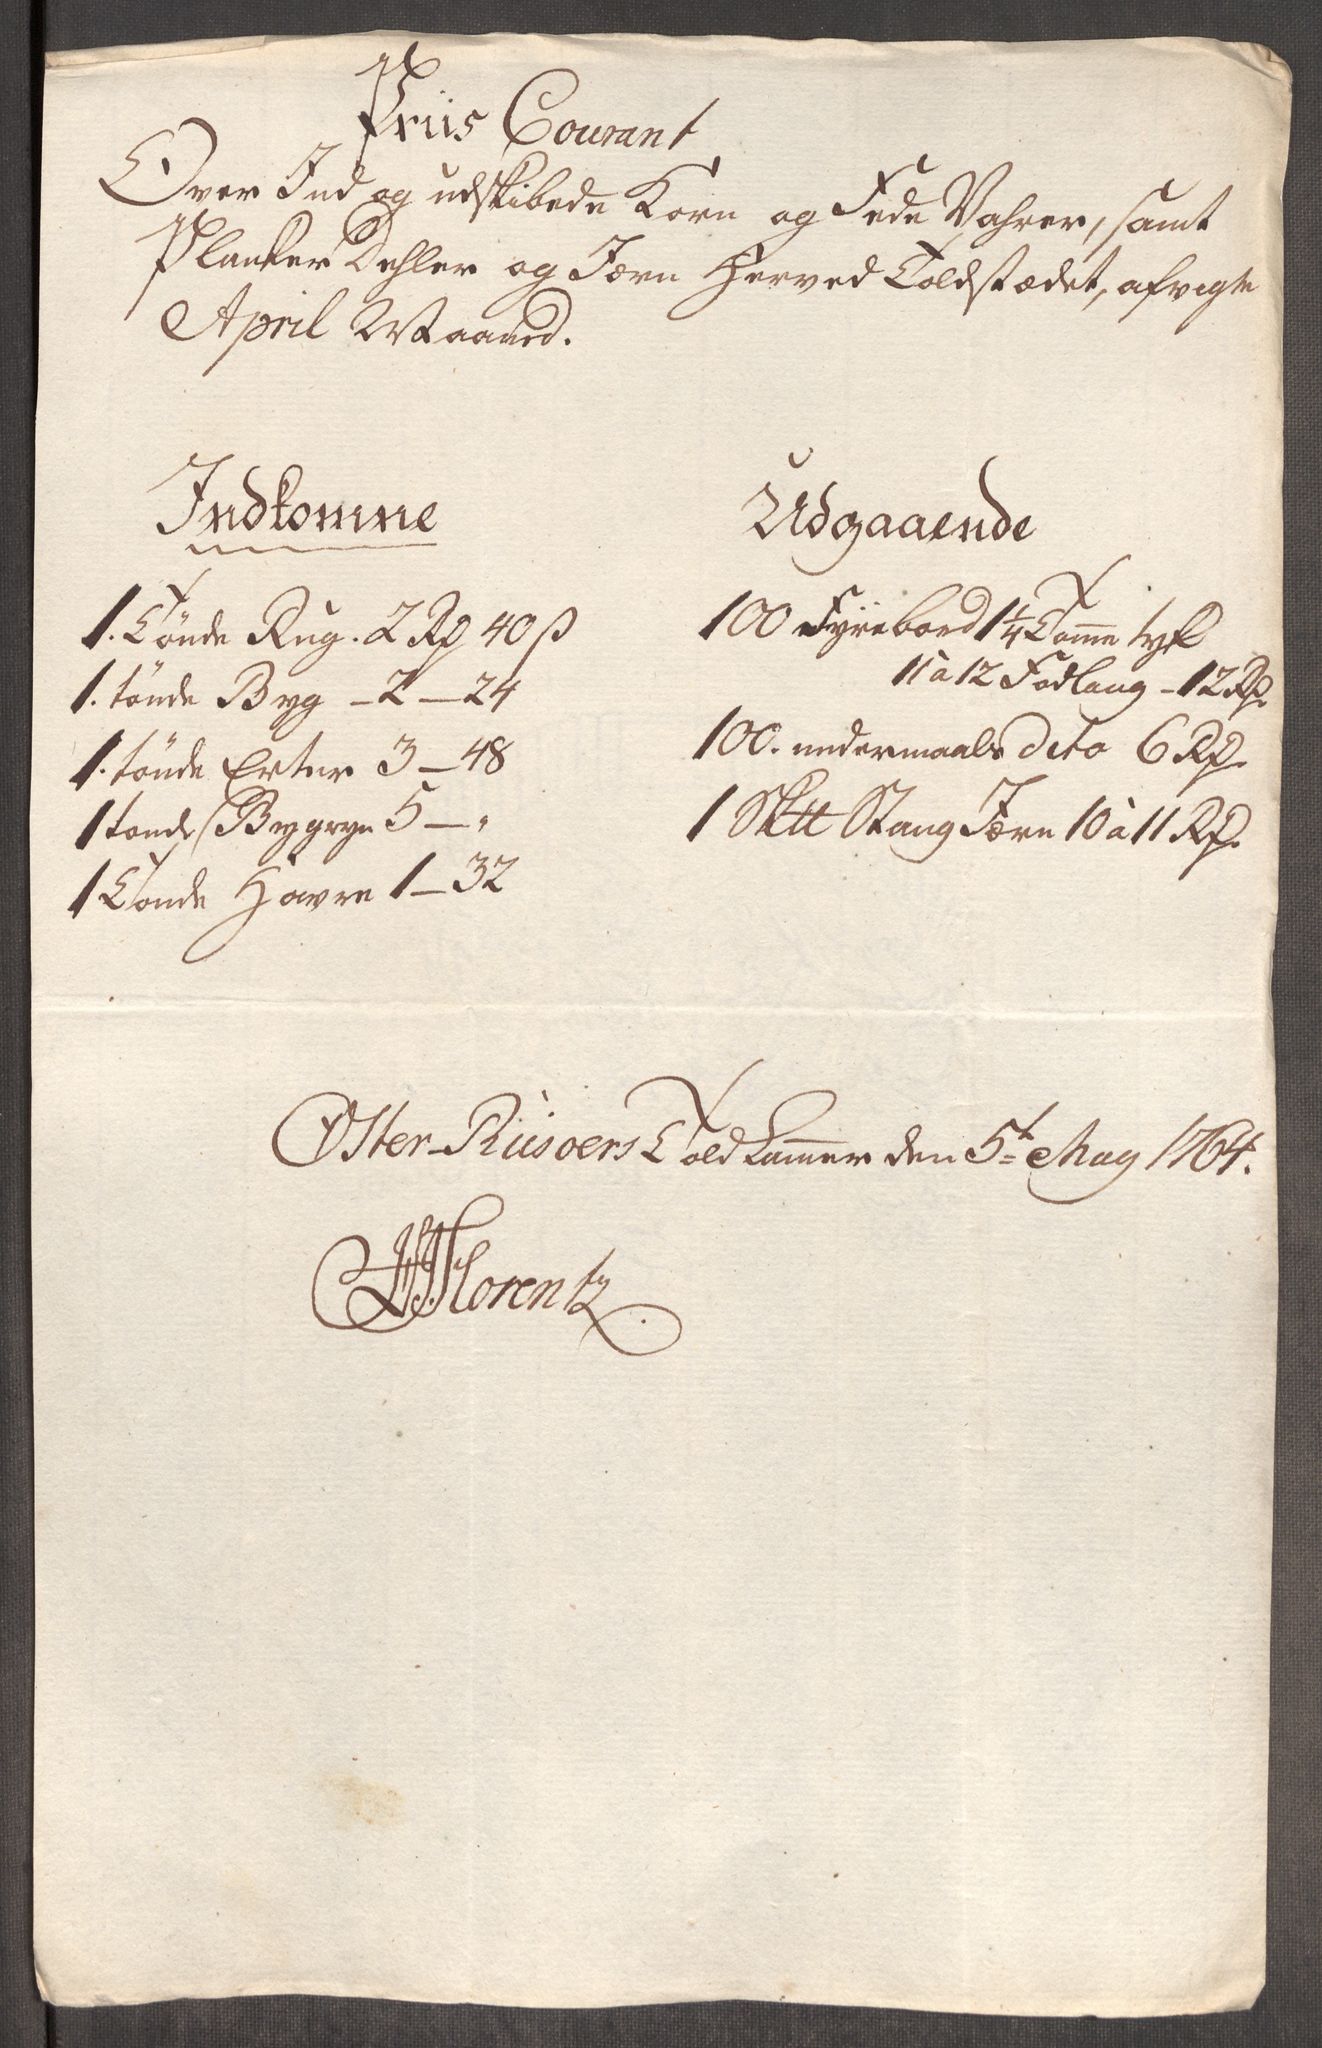 Priis Courant
Over Ind og udskibede Korn og Fede Vahrer, samt
Planker Dehler og Jærn Herved Toldstædet, afvigte
April Maaned.
Indkomne
1. Tönde Rug. 2 Rd 40 ß
1. tönde Byg - 2 - 24
1. tönde Erter 3 - 48
1 tönde Bygryn 5 - "
1 Tönde Havre 1 - 32
Udgaaende
100 Fyrebord 1 1/4 Tomme tyk
11 à 12 Fod lang - 12 Rd.
100. undermaals dito 6 Rd.
1 Sk℔ Stang Jærn 10 à 11 Rd.
Öster-Riisoers Told Kammer den 5t May 1764.
Florentz